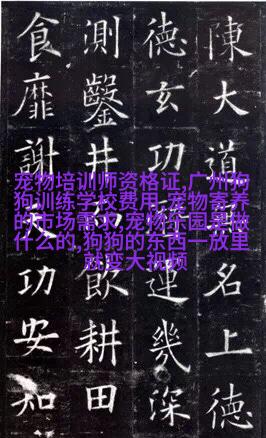 宠物培训师资格证,广州狗
狗训练学校费用,宠物寄养
的市场需求,宠物乐园要做
什么的,狗狗的东西一放里
就变大视频
陳大道名上德
德玄功運幾深
測鑿井飲耕田
食靡謝功安知